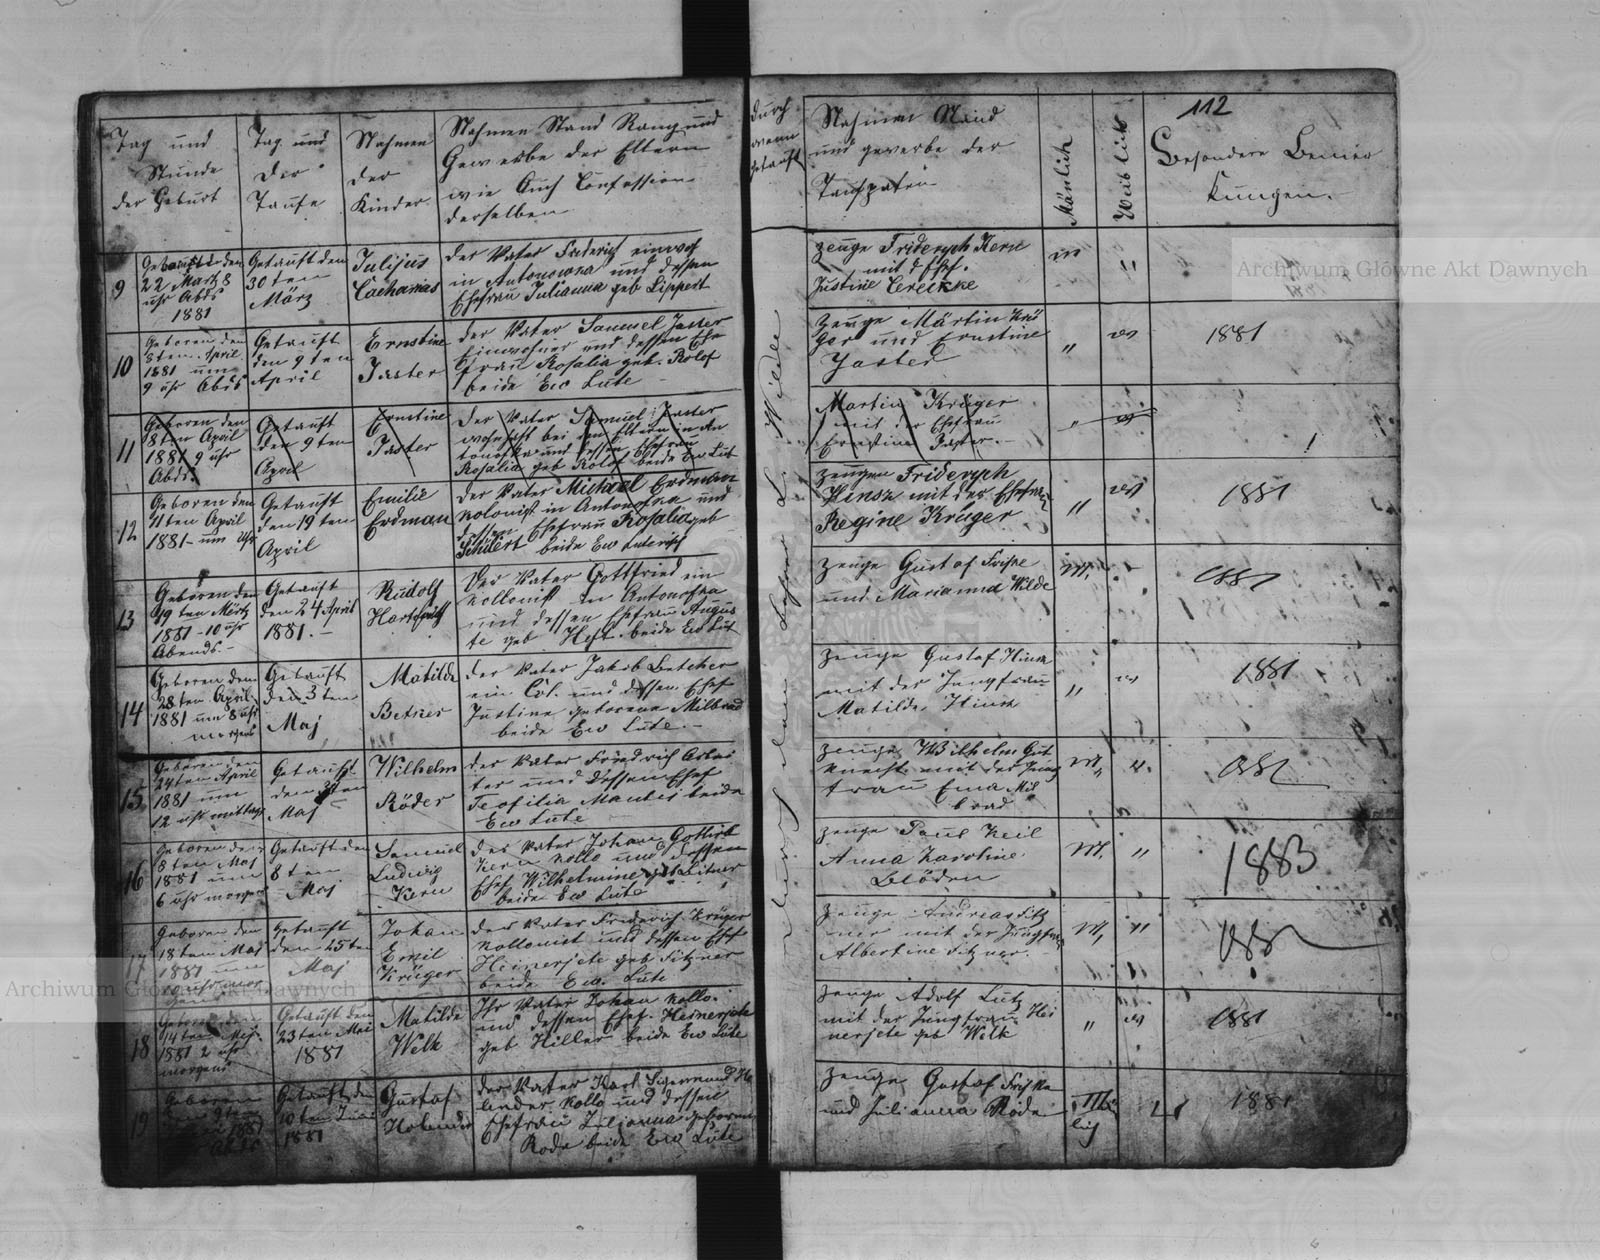 112
Tag und
Stunde
der Geburt
Tag und
der
Taufe
Nahmen
der
Kinder
Nahmen Stand Rang und
Gewerbe der Eltern
wie Auch Confession
derselben
durch
wenn
getauft
Nahmen Stand
und gewerbe der
Taufpaten
Mänlich
Weiblich
Besondere Bemer
kungen.
9
22 März 8
uhr Abds
1881
Getauft den
30 ten
März
Julijus
Zacharias
der Vater Friderich einwoh
in Antonowka und dessen
Ehefrau Julianna geb Lippert
zeuge Frideryph Kern
mit d Ehef.
Justine
m
"
10
Geboren den
8 ten April
1881 um
9 uhr Abds
Getauft
den 9 ten
April
Ernstine
Jaster
der Vater Samuel Jaster
Einwohner und dessen Ehe
frau Rosalia geb. Rolof
beide Ew Lute
Zeuge Märtin Krü
ger und Ernstine
Jaster
"
w
1881
11
Geboren den
8 ten April
1881 9 uhr
Abds.
Getauft
den 9 ten
April
Ernstine
Jaster
Der Vater Samuel Jaster
wohnhaft bei den Eltern in An
tonofka und dessen Ehefrau
Rosalia geb Rolof beide Ew Lut
Martin Krüger
mit der Ehefrau
Ernstine Jaster.
"
w
12
Geboren den
11 ten April
1881 um uhr
Getauft
den 19 ten
April
Emilie
Erdman
der Vater Michael Erdman
kolonist in Antonofka und
dessen Ehefrau Rosalia geb
Schulert beide Ew Luterisch
zeugen Frideryph
Hinsz mit der Ehefrau
Regine Krüger
"
w
1881
13
Geboren den
19 ten Märtz
1881 - 10 uhr
Abends. -
Getauft
den 24 April
1881. -
Rudolf
Der Vater Gottfried ein
kollonist in Antonofka
und dessen Ehefrau Augus
te geb Heft. beide Ew Lut
zeuge Gustaf Friske
und Marianna Wilde
M.
1881
14
Geboren den
28 ten April
1881 um 8 uhr
morgens
Getauft
den 3 ten
Maj
Matilde
Betker
der Vater Jakob Betcher
ein Col. und dessen Ehef
Justine geborene Milbrad
beide Ew Lute. -
zeuge Gustaf Hinsz
mit der Jungfrau
Matilde Hinsz
"
w
1881
15
Geboren den
24 ten April
1881 um
12 uhr mittags
Getauft
Maj
Wilhelm
Röder
der Vater Friedrich Arbei
ter und dessen Ehef
Teofilia Mantei beide
Ew Lute
zeuge Wilhelm Gut
knecht mit der Jung
frau Ema Mil
brad
M,
"
1881
16
Geboren den
8 ten Maj
1881 um
6 uhr morgens
Getauft den
8 ten
Maj
Samuel
Ludwig
Kern
der Vater Johan Gottlieb
Kern kollo und dessen
Ehef Wilhelmine geb Leitner
beide Ew Lute
zeuge Paul Keil
Anna Karoline
Blöden
M,
"
1883
17
Geboren den
18 ten Maj
1881 um
Getauft
den 25 ten
Maj
Johan
Emil
Krüger
der Vater Friderich Krüger
kollonist und dessen Ehef
Heinerjete geb Fitzner
beide Ew. Lute
zeuge Andreas Fitz
ner mit der Jungfrau
Albertine Fitzner.
M,
"
1881
18
Geboren den
14 ten Maj.
1881 2 uhr
morgens
Getauft den
23 ten Mai
1881
Matilde
Welk
Ihr Vater Johan kollo.
und dessen Ehef. Heinerjete
geb Hiller beide Ew Lute
zeuge Adolf Lutz
mit der Jungfrau Hei
nerjete geb Welk
"
w
1881
19
Geboren
1881
Abds
Getauft den
10 ten Juni
1881
Gustaf
Holender
der Vater Karl Sigemund Ho
lender kollo und dessen
Ehefrau Julianna geborene
Rode beide Ew Lute
zeuge Gustaf Friske
und Julianna Rode
1881
Archiwum Główne Akt Dawnych
Archiwum Główne Akt Dawnych